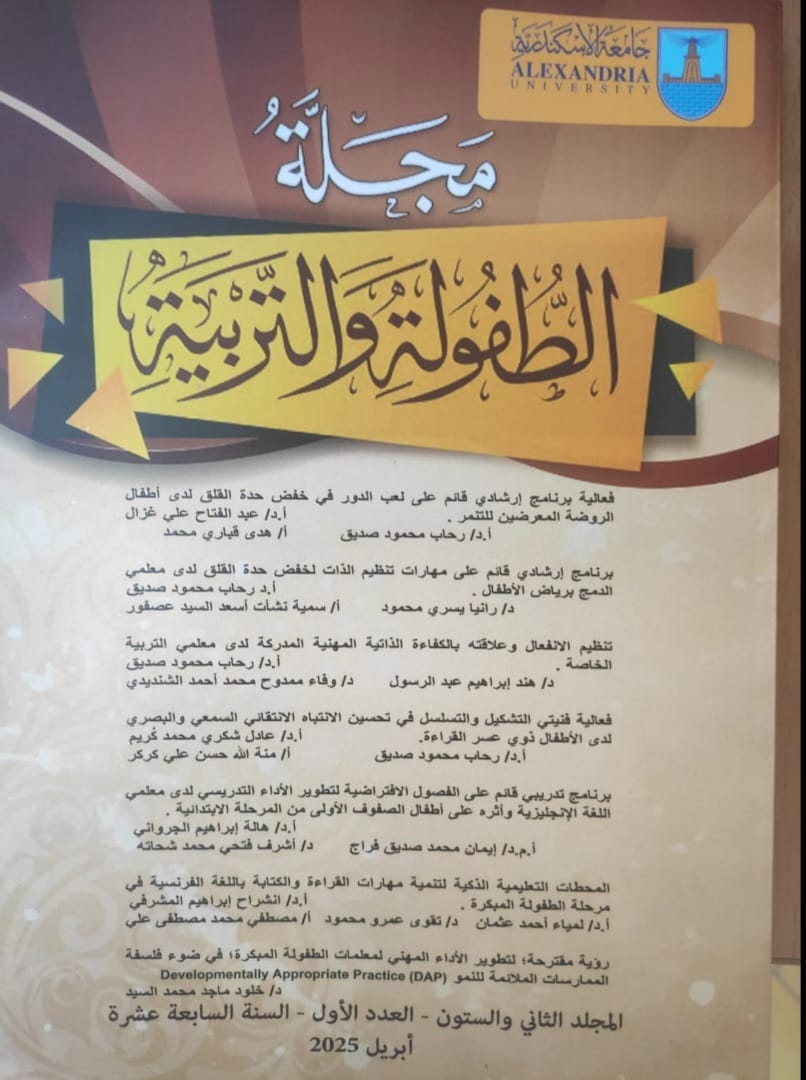 جامعة الإسكندرية
ALEXANDRIA
UNIVERSITY
مَجَلَّةُ
الطُّفُولَةِ وَالتَّرْبِيَةِ
فعالية برنامج إرشادي قائم على لعب الدور في خفض حدة القلق لدى أطفال
الروضة المعرضين للتنمر . أ.د/ عبد الفتاح علي غزال
أ.د/ رحاب محمود صديق أ/ هدى قباري محمد
برنامج إرشادي قائم على مهارات تنظيم الذات لخفض حدة القلق لدى معلمي
الدمج برياض الأطفال . أ.د رحاب محمود صديق
د/ رانيا يسري محمود أ/ سمية نشأت أسعد السيد عصفور
تنظيم الانفعال وعلاقته بالكفاءة الذاتية المهنية المدركة لدى معلمي التربية
الخاصة . أ.د/ رحاب محمود صديق
د/ هند إبراهيم عبد الرسول د/ وفاء ممدوح محمد أحمد الشنديدي
فعالية فنيتي التشكيل والتسلسل في تحسين الانتباه الانتقائي السمعي والبصري
لدى الأطفال ذوي عسر القراءة. أ.د/ عادل شكري محمد كُريم
أ.د/ رحاب محمود صديق أ/ منة الله حسن علي كركر
برنامج تدريبي قائم على الفصول الافتراضية لتطوير الأداء التدريسي لدى معلمي
اللغة الإنجليزية وأثره على أطفال الصفوف الأولى من المرحلة الابتدائية .
أ.د/ هالة إبراهيم الجرواني
أ.م.د/ إيمان محمد صديق فراج د/ أشرف فتحي محمد شحاته
المحطات التعليمية الذكية لتنمية مهارات القراءة والكتابة باللغة الفرنسية في
مرحلة الطفولة المبكرة . أ.د/ انشراح إبراهيم المشرفي
أ.د/ لمياء أحمد عثمان د/ تقوى عمرو محمود أ/ مصطفي محمد مصطفى علي
رؤية مقترحة؛ لتطوير الأداء المهني لمعلمات الطفولة المبكرة؛ في ضوء فلسفة
الممارسات الملائمة للنمو Developmentally Appropriate Practice (DAP)
د/ خلود ماجد محمد السيد
المجلد الثاني والستون - العدد الأول - السنة السابعة عشرة
أبريل 2025